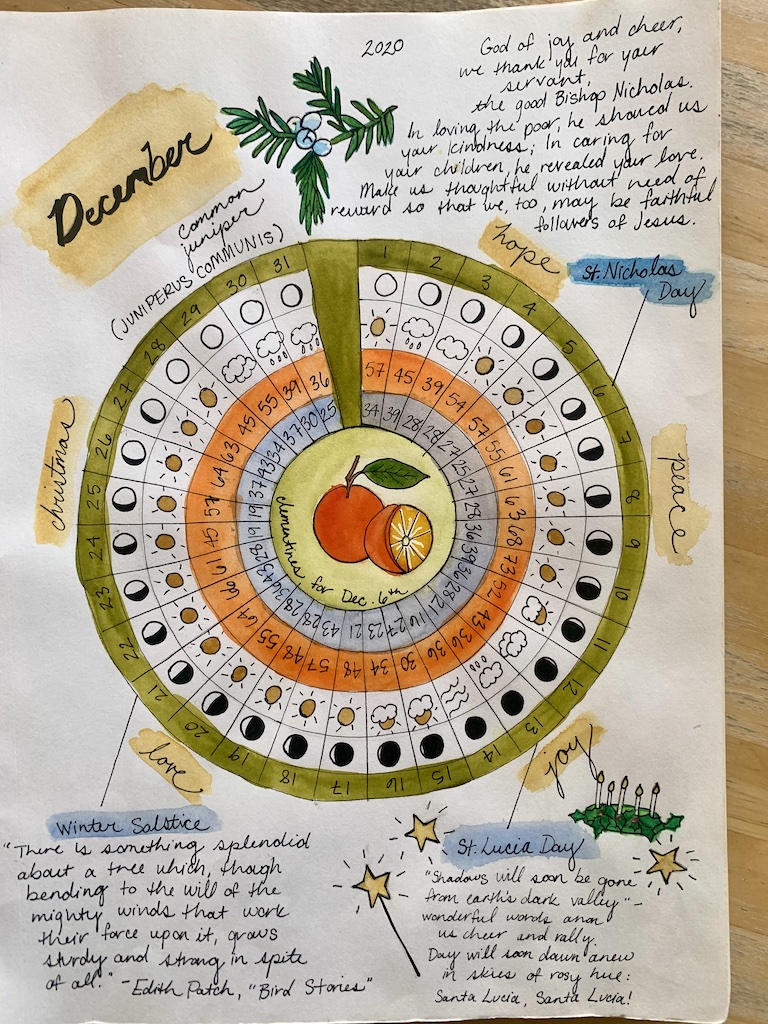 2020
God of joy and cheer,
we thank you for your
servant,
the good Bishop Nicholas.
In loving the poor, he showed us
your kindness; In caring for
your children, he revealed your love.
Make us thoughtful without need of
reward so that we, too, may be faithful
followers of Jesus.
December
common
juniper
(JUNIPERUS COMMUNIS)
hope
St. Nicholas
Day
peace
christmas
1 2 3 4 5 6 7 8 9 10 11 12 13 14 15 16 17 18 19 20 21 22 23 24 25 26 27 28 29 30 31
57 45 39 54 57 55 61 63 68 73 52 43 36 36 30 34 48 57 48 55 64 66 61 45 57 64 63 45 55 39 36
34 39 28 28 27 25 27 28 36 39 36 28 21 16 27 23 21 43 28 28 36 43 28 19 19 37 43 34 37 30 25
clementines for Dec. 6th
love
joy
Winter Solstice
"There is something splendid
about a tree which, though
bending to the will of the
mighty winds that work
their force upon it, grows
sturdy and strong in spite
of all." - Edith Patch, "Bird Stories"
St. Lucia Day
"Shadows will soon be gone
from earth's dark valley" -
wonderful words anon
us cheer and rally.
Day will soon dawn anew
in skies of rosy hue:
Santa Lucia, Santa Lucia!